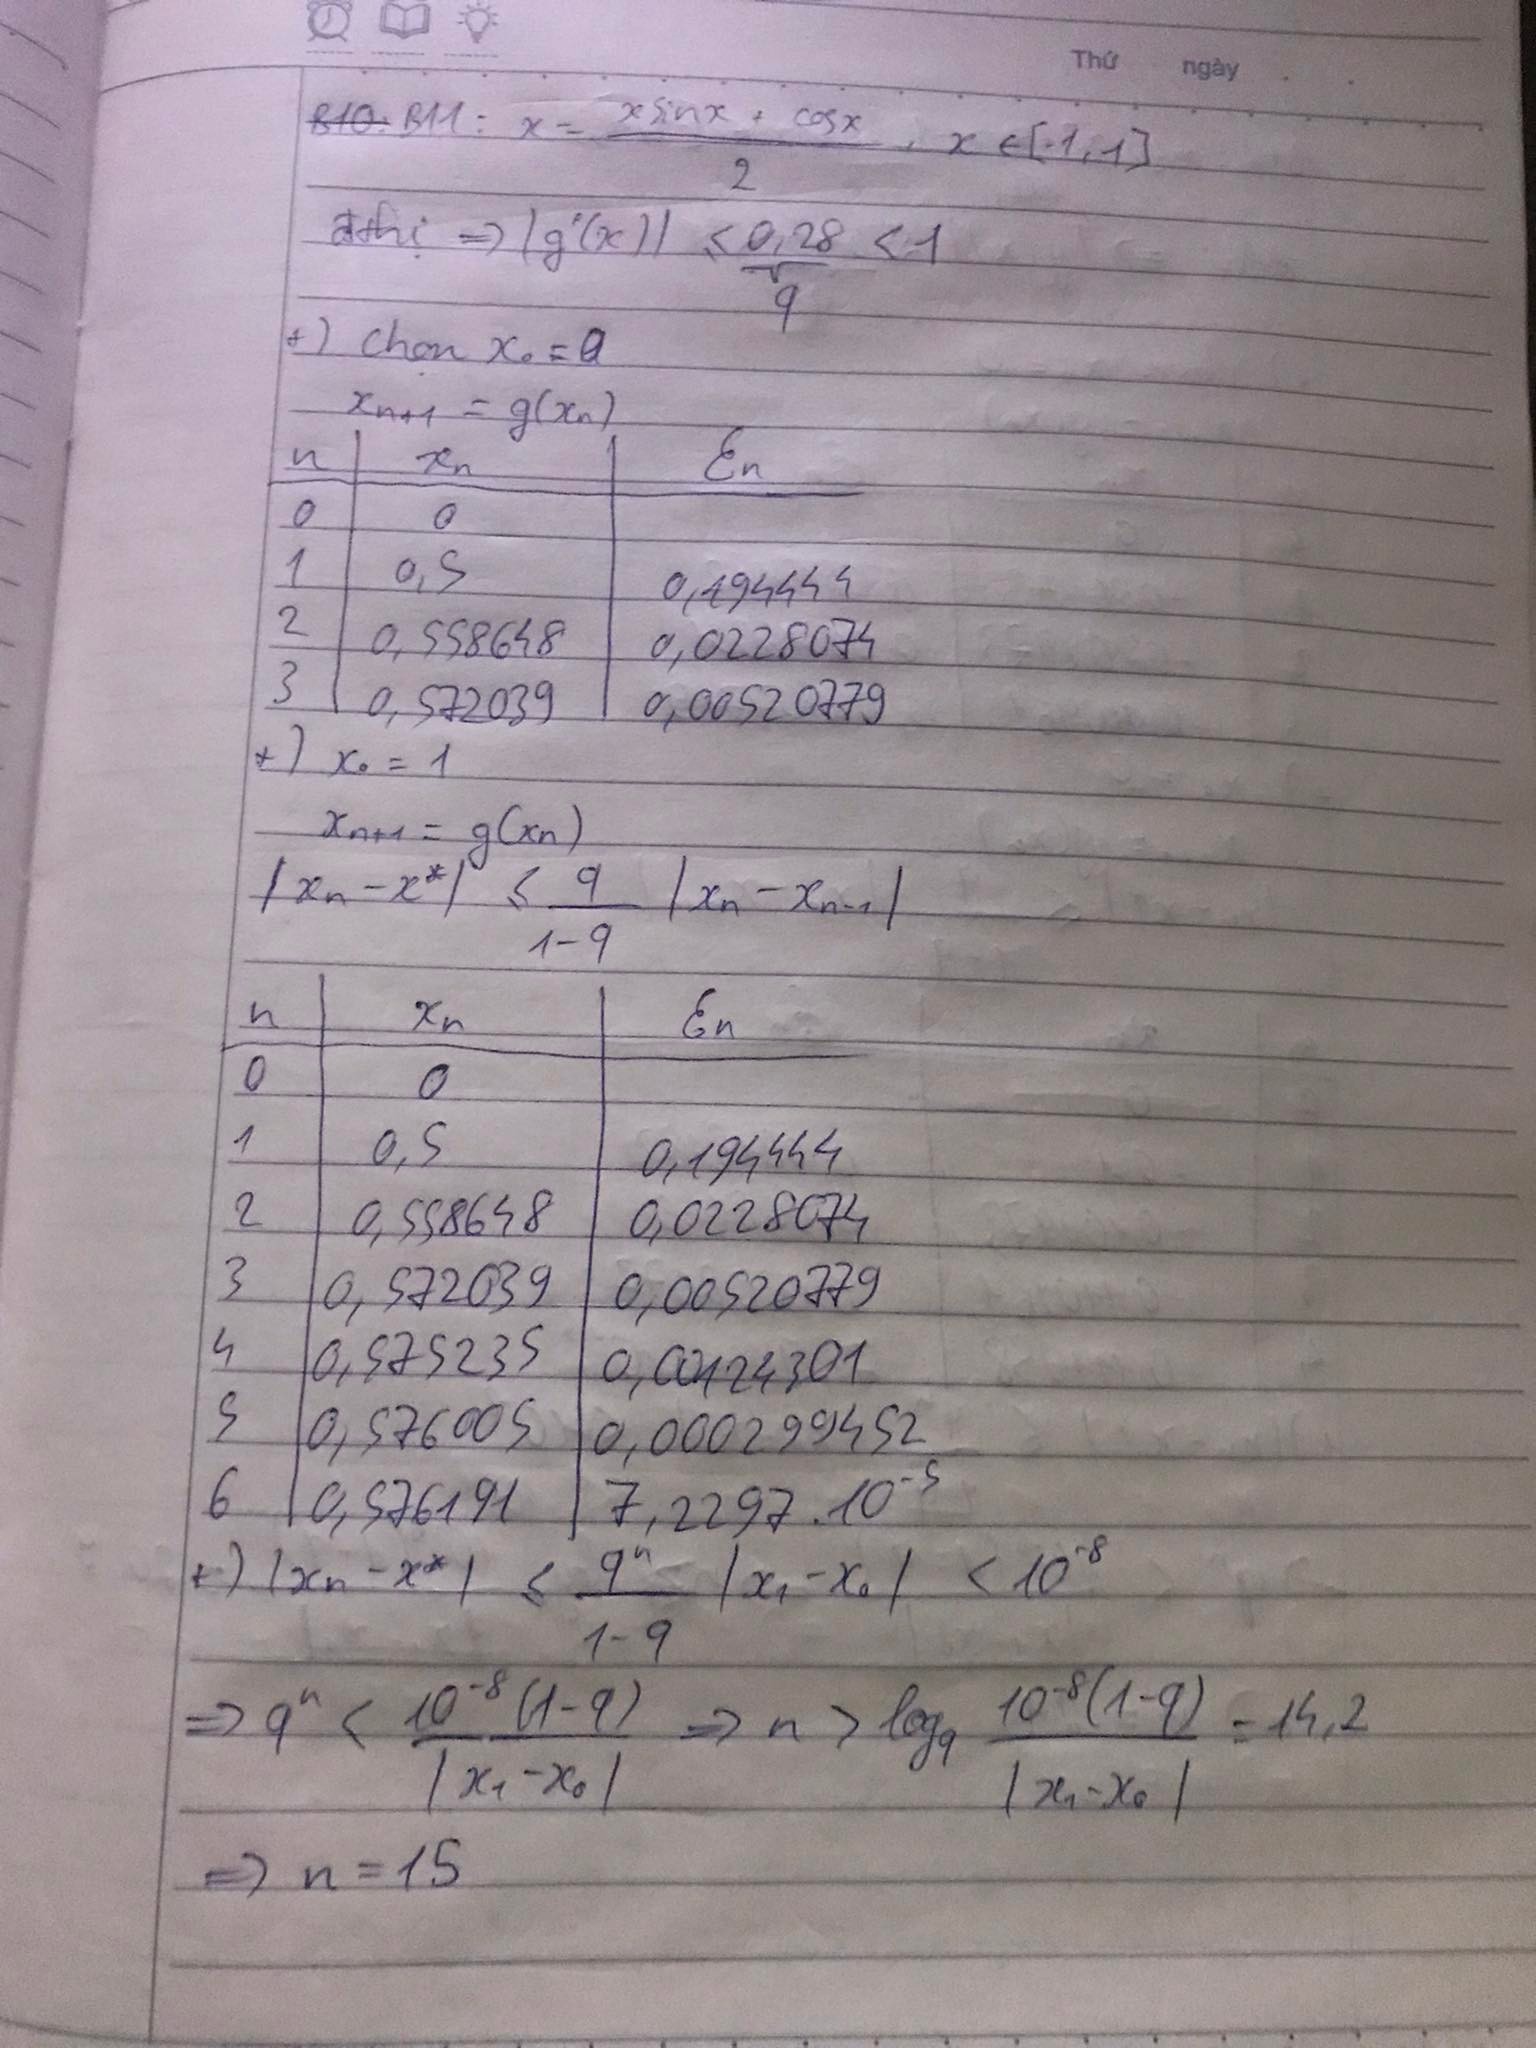 Thứ ngày
B10. B11: x = (x sinx + cosx)/2, x ∈ [-1, 1]
đthị => |g'(x)| ≤ 0,28 < 1
q
+) Chọn x₀ = 0
xₙ₊₁ = g(xₙ)
n xₙ Ɛₙ
0 0
1 0,5 0,194444
2 0,558648 0,0228074
3 0,572039 0,00520779
+) x₀ = 1
xₙ₊₁ = g(xₙ)
|xₙ - x*| ≤ q/(1-q) |xₙ - xₙ₋₁|
n xₙ Ɛₙ
0 0
1 0,5 0,194444
2 0,558648 0,0228074
3 0,572039 0,00520779
4 0,575235 0,00124301
5 0,576005 0,000299452
6 0,576191 7,2297.10⁻⁵
+) |xₙ - x*| ≤ qⁿ/(1-q) |x₁ - x₀| < 10⁻⁸
=> qⁿ < 10⁻⁸(1-q)/|x₁-x₀| => n > log_q 10⁻⁸(1-q)/|x₁-x₀| = 14,2
=> n = 15